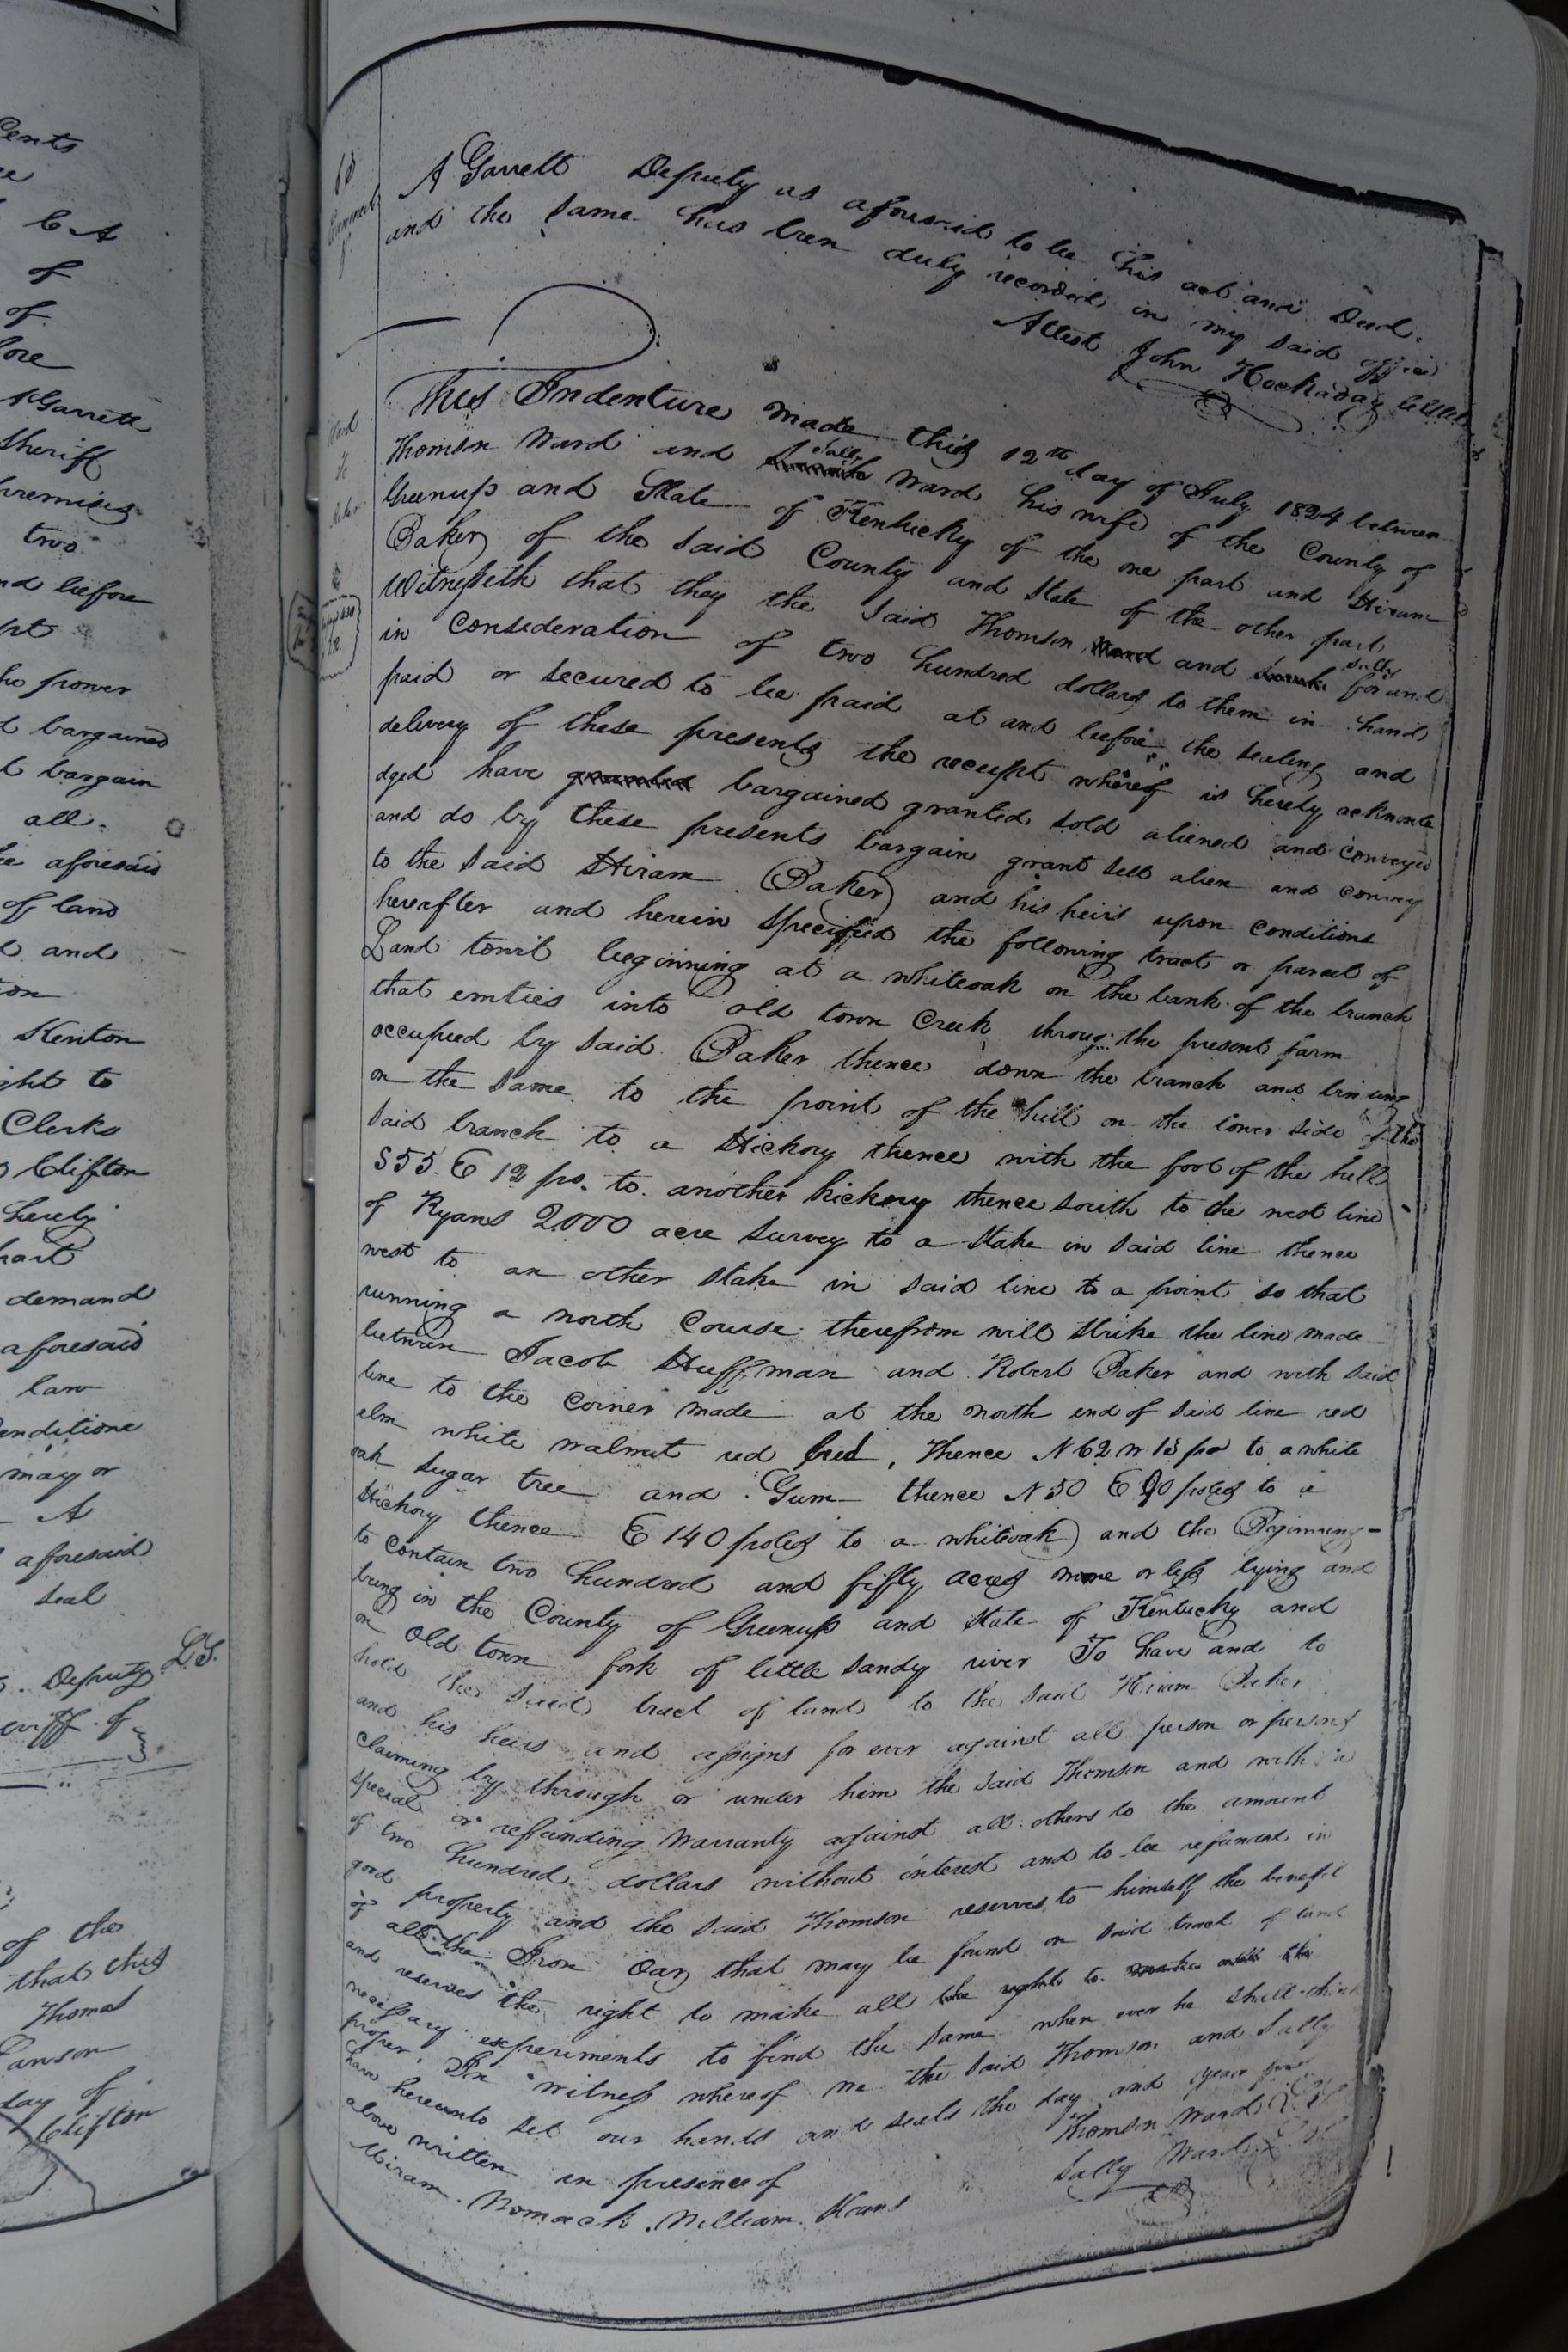 Cents
b A
of
of
fore
A Garrett
Sheriff
premises
two
and before
he power
d bargained
t bargain
all
he aforesaid
of land
d and
Kenton
ght to
Clerks
Clifton
hereby
part
demand
aforesaid
law
Conditione
may or
A
aforesaid
seal
Deputy L.S.
eriff of
of the
that this
Thomas
Lawson
day of
Clifton
A Garrett Deputy as aforesaid to be his act and Deed.
and the same has been duly recorded in my said office
Attest John Hockaday
Ward
to
Baker
This Indenture made this 12th day of July 1824 between
Thomson Ward and Sally Ward his wife of the County of
Greenup and State of Kentucky of the one part and Hiram
Baker of the said County and State of the other part
Witnesseth that they the said Thomson Ward and Sally for and
in Consideration of two hundred dollars to them in hand
paid or secured to be paid at and before the sealing and
delivery of these presents the receipt whereof is hereby acknowle
dged have granted bargained granted sold aliened and conveyed
and do by these presents bargain grant sell alien and convey
to the said Hiram Baker and his heirs upon conditions
hereafter and herein specified the following tract or parcel of
Land towit beginning at a whiteoak on the bank of the branch
that emties into old town Creek throug the present farm
occupied by said Baker thence down the branch and binding
on the same to the point of the hill on the lower side of the
said branch to a Hickory thence with the foot of the hill
S 55. E 12 po. to another hickory thence south to the west line
of Ryans 2000 acre survey to a stake in said line thence
west to an other stake in said line to a point so that
running a north Course therefrom will strike the line made
between Jacob Huffman and Robert Baker and with said
line to the corner made at the north end of said line red
elm white walnut red bud, Thence N 62 W 18 po to a white
oak sugar tree and Gum thence N 50 E 90 poles to a
Hickory thence E 140 poles to a whiteoak and the Beginning-
to contain two hundred and fifty acres more or less lying and
being in the County of Greenup and State of Kentucky and
on Old town fork of little Sandy river To have and to
hold the said tract of land to the said Hiram Baker
and his heirs and assigns for ever against all person or persons
claiming by through or under him the said Thomson and with a
special or refunding Warranty against all others to the amount
of two hundred dollars without interest and to be refunded in
good property and the said Thomson reserves to himself the benefit
of all the Iron oar that may be found on said tract of land
and reserves the right to make all the right to make all the
necessary experiments to find the same when ever he shall think
proper. In witness whereof we the said Thomson and Sally
have hereunto set our hands and seals the day and year
above written in presence of Thomson Ward
Hiram Womack. William Sally Ward